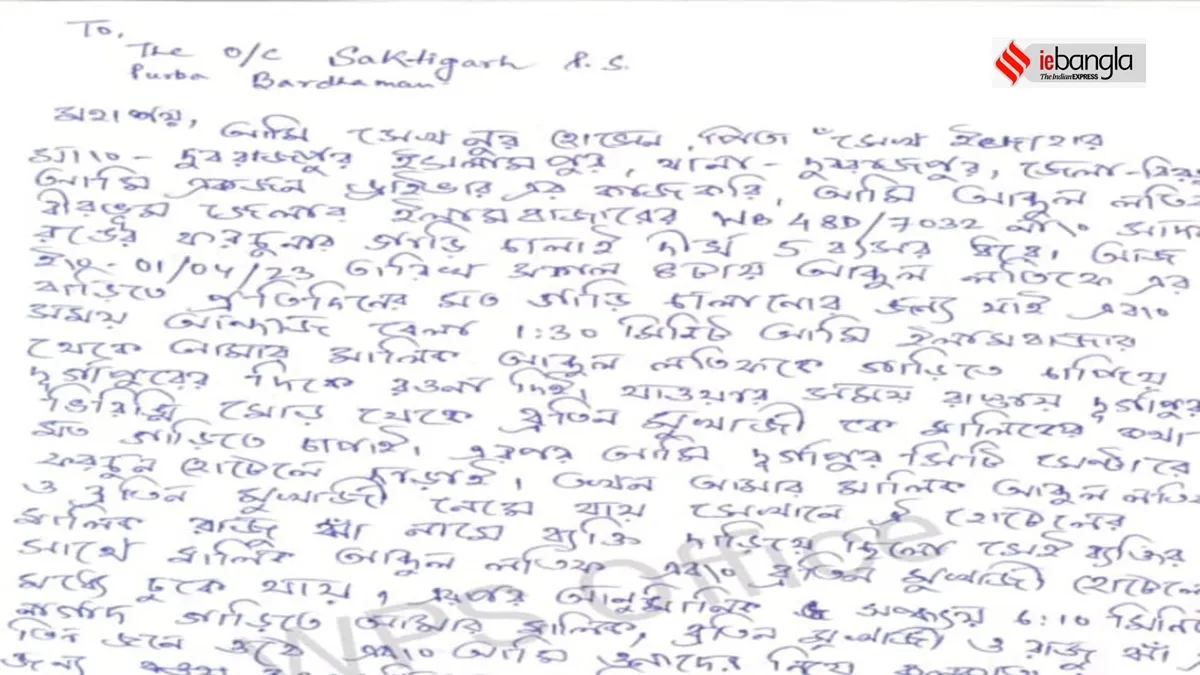 To,
The O/C Saktigarh P.S.
Purba Bardhaman
iebangla
The Indian EXPRESS
মহাশয়,
আমি সেখ নুর হোসেন, পিতা - সেখ ইজাহার
সাং - দুবরাজপুর ইসলামপুর, থানা - দুবরাজপুর, জেলা - বীরভূ
আমি একজন ড্রাইভার এর কাজ করি, আমি আব্দুল লতি
বীরভূম জেলার ইলামবাজারের WB 48D/7032 নং সাদা
রঙের ফরচুনার গাড়ি চালাই দীর্ঘ 5 বৎসর ধরে। আজ
ইং - 01/04/23 তারিখ সকাল ৪টায় আব্দুল লতিফ এর
বাড়িতে প্রতিদিনের মত গাড়ি চালানোর জন্য যাই এবং
সময় আন্দাজ বেলা 1:30 মিনিট আমি ইলামবাজার
থেকে আমার মালিক আব্দুল লতিফকে গাড়িতে চাপিয়ে
দুর্গাপুরের দিকে রওনা দিই। যাওয়ার সময় রাস্তায় দুর্গাপুর
ভিরিঙ্গি মোড় থেকে ব্রতিন মুখার্জী কে মালিকের কথা
মত গাড়িতে চাপাই। এরপর আমি দুর্গাপুর সিটি সেন্টারে
ফরচুন হোটেলে দাঁড়াই। তখন আমার মালিক আব্দুল লতি
ও ব্রতিন মুখার্জী নেমে যায় সেখানে ঐ হোটেলের
মালিক রাজু ঝাঁ নামে ব্যক্তি দাঁড়িয়ে ছিলো সেই ব্যক্তির
সাথে মালিক আব্দুল লতিফ এবং ব্রতিন মুখার্জী হোটেলে
মধ্যে ঢুকে যায়, এরপর আনুমানিক সন্ধ্যায় 6:10 মিনি
নাগাদ গাড়িতে আমার মালিক, ব্রতিন মুখার্জী ও রাজু ঝাঁ
তিন জনে ওঠে এবং আমি ওনাদের নিয়ে
জন্য
WPS Office